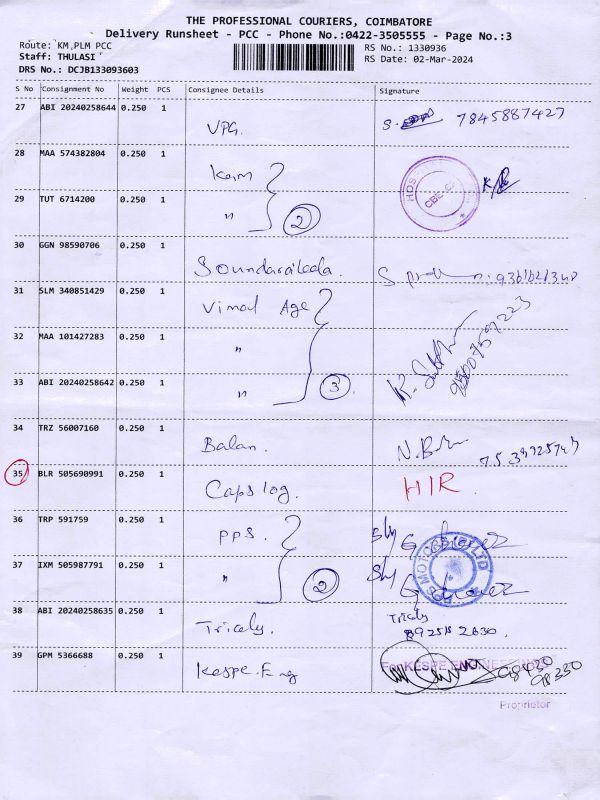 THE PROFESSIONAL COURIERS, COIMBATORE
Delivery Runsheet - PCC - Phone No.:0422-3505555 - Page No.:3
Route: KM,PLM PCC
Staff: THULASI
DRS No.: DCJB133093603
RS No.: 1330936
RS Date: 02-Mar-2024
S No Consignment No Weight PCS Consignee Details Signature
27 ABI 20240258644 0.250 1 VPG. 7845887427
28 MAA 574382804 0.250 1
29 TUT 6714200 0.250 1 " 2
30 GGN 98590706 0.250 1
31 SLM 340851429 0.250 1 Vimal Age
32 MAA 101427283 0.250 1 "
33 ABI 20240258642 0.250 1 " 3
34 TRZ 56007160 0.250 1 Balan.
35 BLR 505690991 0.250 1 Caps log. HIR
36 TRP 591759 0.250 1 PPS.
37 IXM 505987791 0.250 1 " 2
PPS MOTORS (P) LTD
38 ABI 20240258635 0.250 1 Tricely. Tricely
89251 2630.
39 GPM 5366688 0.250 1 Kespe. Eng
Proprietor